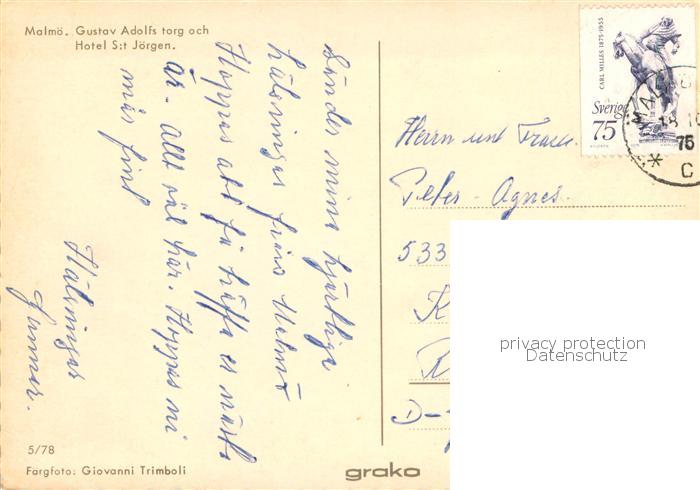 Malmö. Gustav Adolfs torg och
Hotel S:t Jörgen.
Sänder mina hjärtliga
hälsningar från Malmö
Hoppas att få träffa er nästa
år. Allt väl här. Hoppas ni
mår fint
Hälsningar
Gunnar.
5/78
Färgfoto: Giovanni Trimboli
grako
CARL MILLES 1875-1955
Sverige
75
MALMÖ
75
C
Herrn und Frau
Peter Agnes
533
K
R
D-
privacy protection
Datenschutz